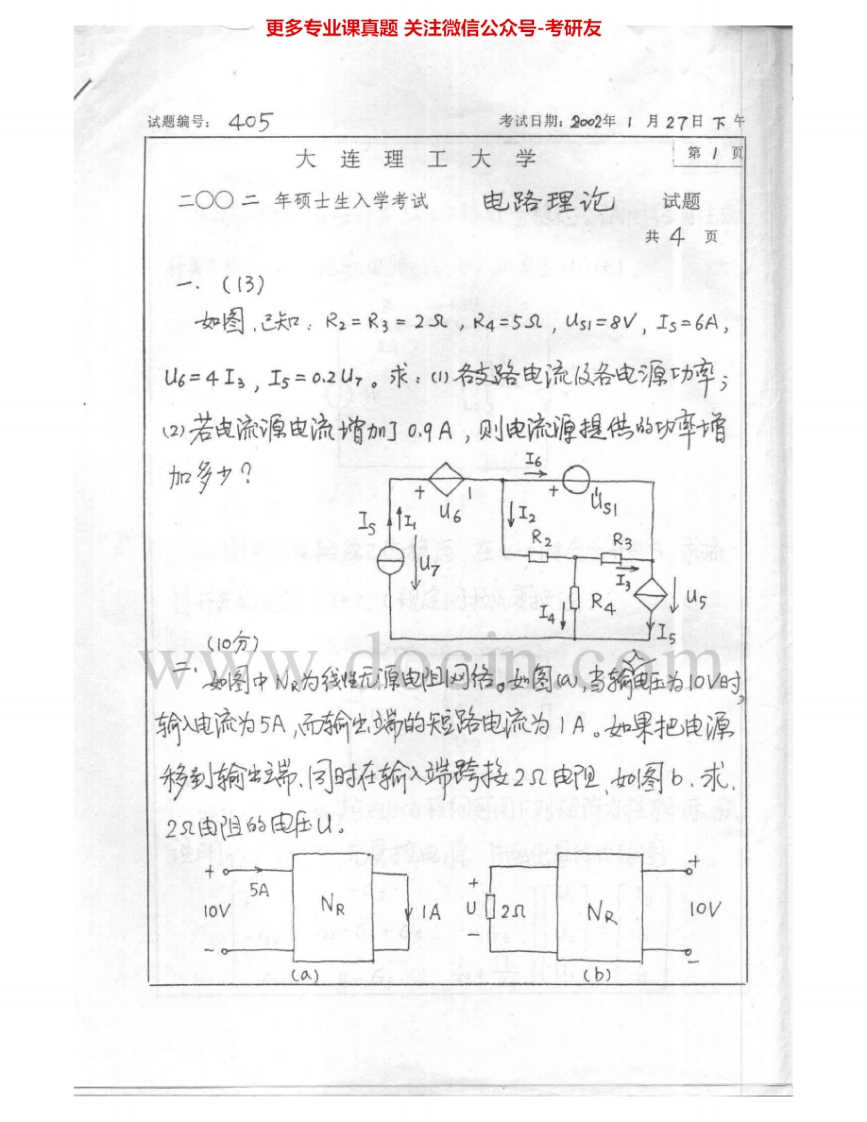 更多专业课真题 关注微信公众号-考研友
试题编号： 405 考试日期：2002年 1 月 27日 下 午
大 连 理 工 大 学 第 1 页
二〇〇二 年硕士生入学考试 电路理论 试题
共 4 页
一. (13)
如图，已知：R2=R3=2Ω，R4=5Ω，US1=8V，IS=6A，
U6=4I3，I5=0.2U7。求：(1)各支路电流及各电源功率；
(2)若电流源电流增加了0.9A，则电流源提供的功率增
加多少？
I6
+ U6 + US1
IS I1 I2
R2 R3
U7 I3
I4 R4 U5
I5
(10分)
www.docin.com
二. 如图中NR为线性无源电阻网络。如图(a)，当输入电压为10V时，
输入电流为5A，而输出端的短路电流为1A。如果把电源
移到输出端，同时在输入端跨接2Ω电阻，如图b，求，
2Ω电阻的电压U。
+ 5A +
10V NR 1A U 2Ω NR 10V
− − −
(a) (b)